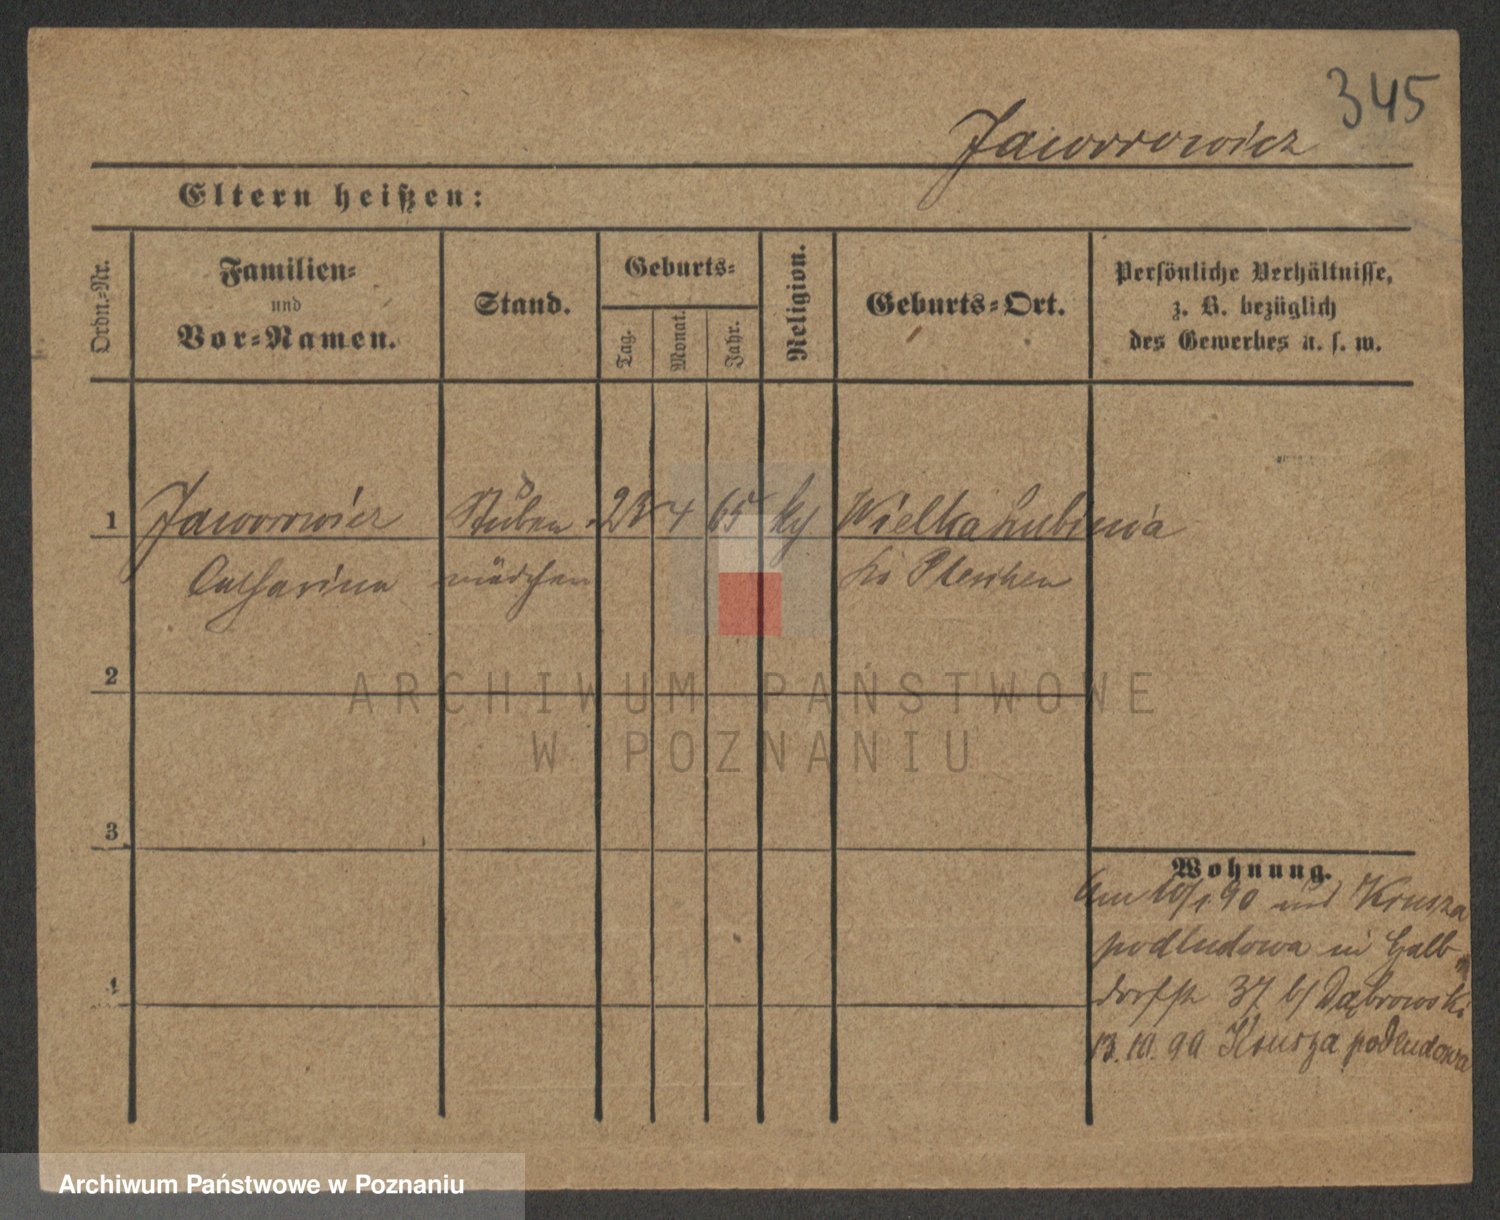 345
Jaworowicz
Eltern heißen:
Ordn.-Nr.
Familien-
und
Vor-Namen.
Stand.
Geburts-
Tag.
Monat.
Jahr.
Religion.
Geburts-Ort.
Persönliche Verhältnisse,
z. B. bezüglich
des Gewerbes u. s. w.
1 Jaworowicz Stuben 23 4 65 Wielka Lubinia
Catharina mädchen Pleschen
2
3
Wohnung.
Am 10/1 90 Krusza
podludowa in Halb
dorfstr 37 b/ Dąbrowski
4
13.10.90 Krusza podludowa
ARCHIWUM PAŃSTWOWE
W POZNANIU
Archiwum Państwowe w Poznaniu